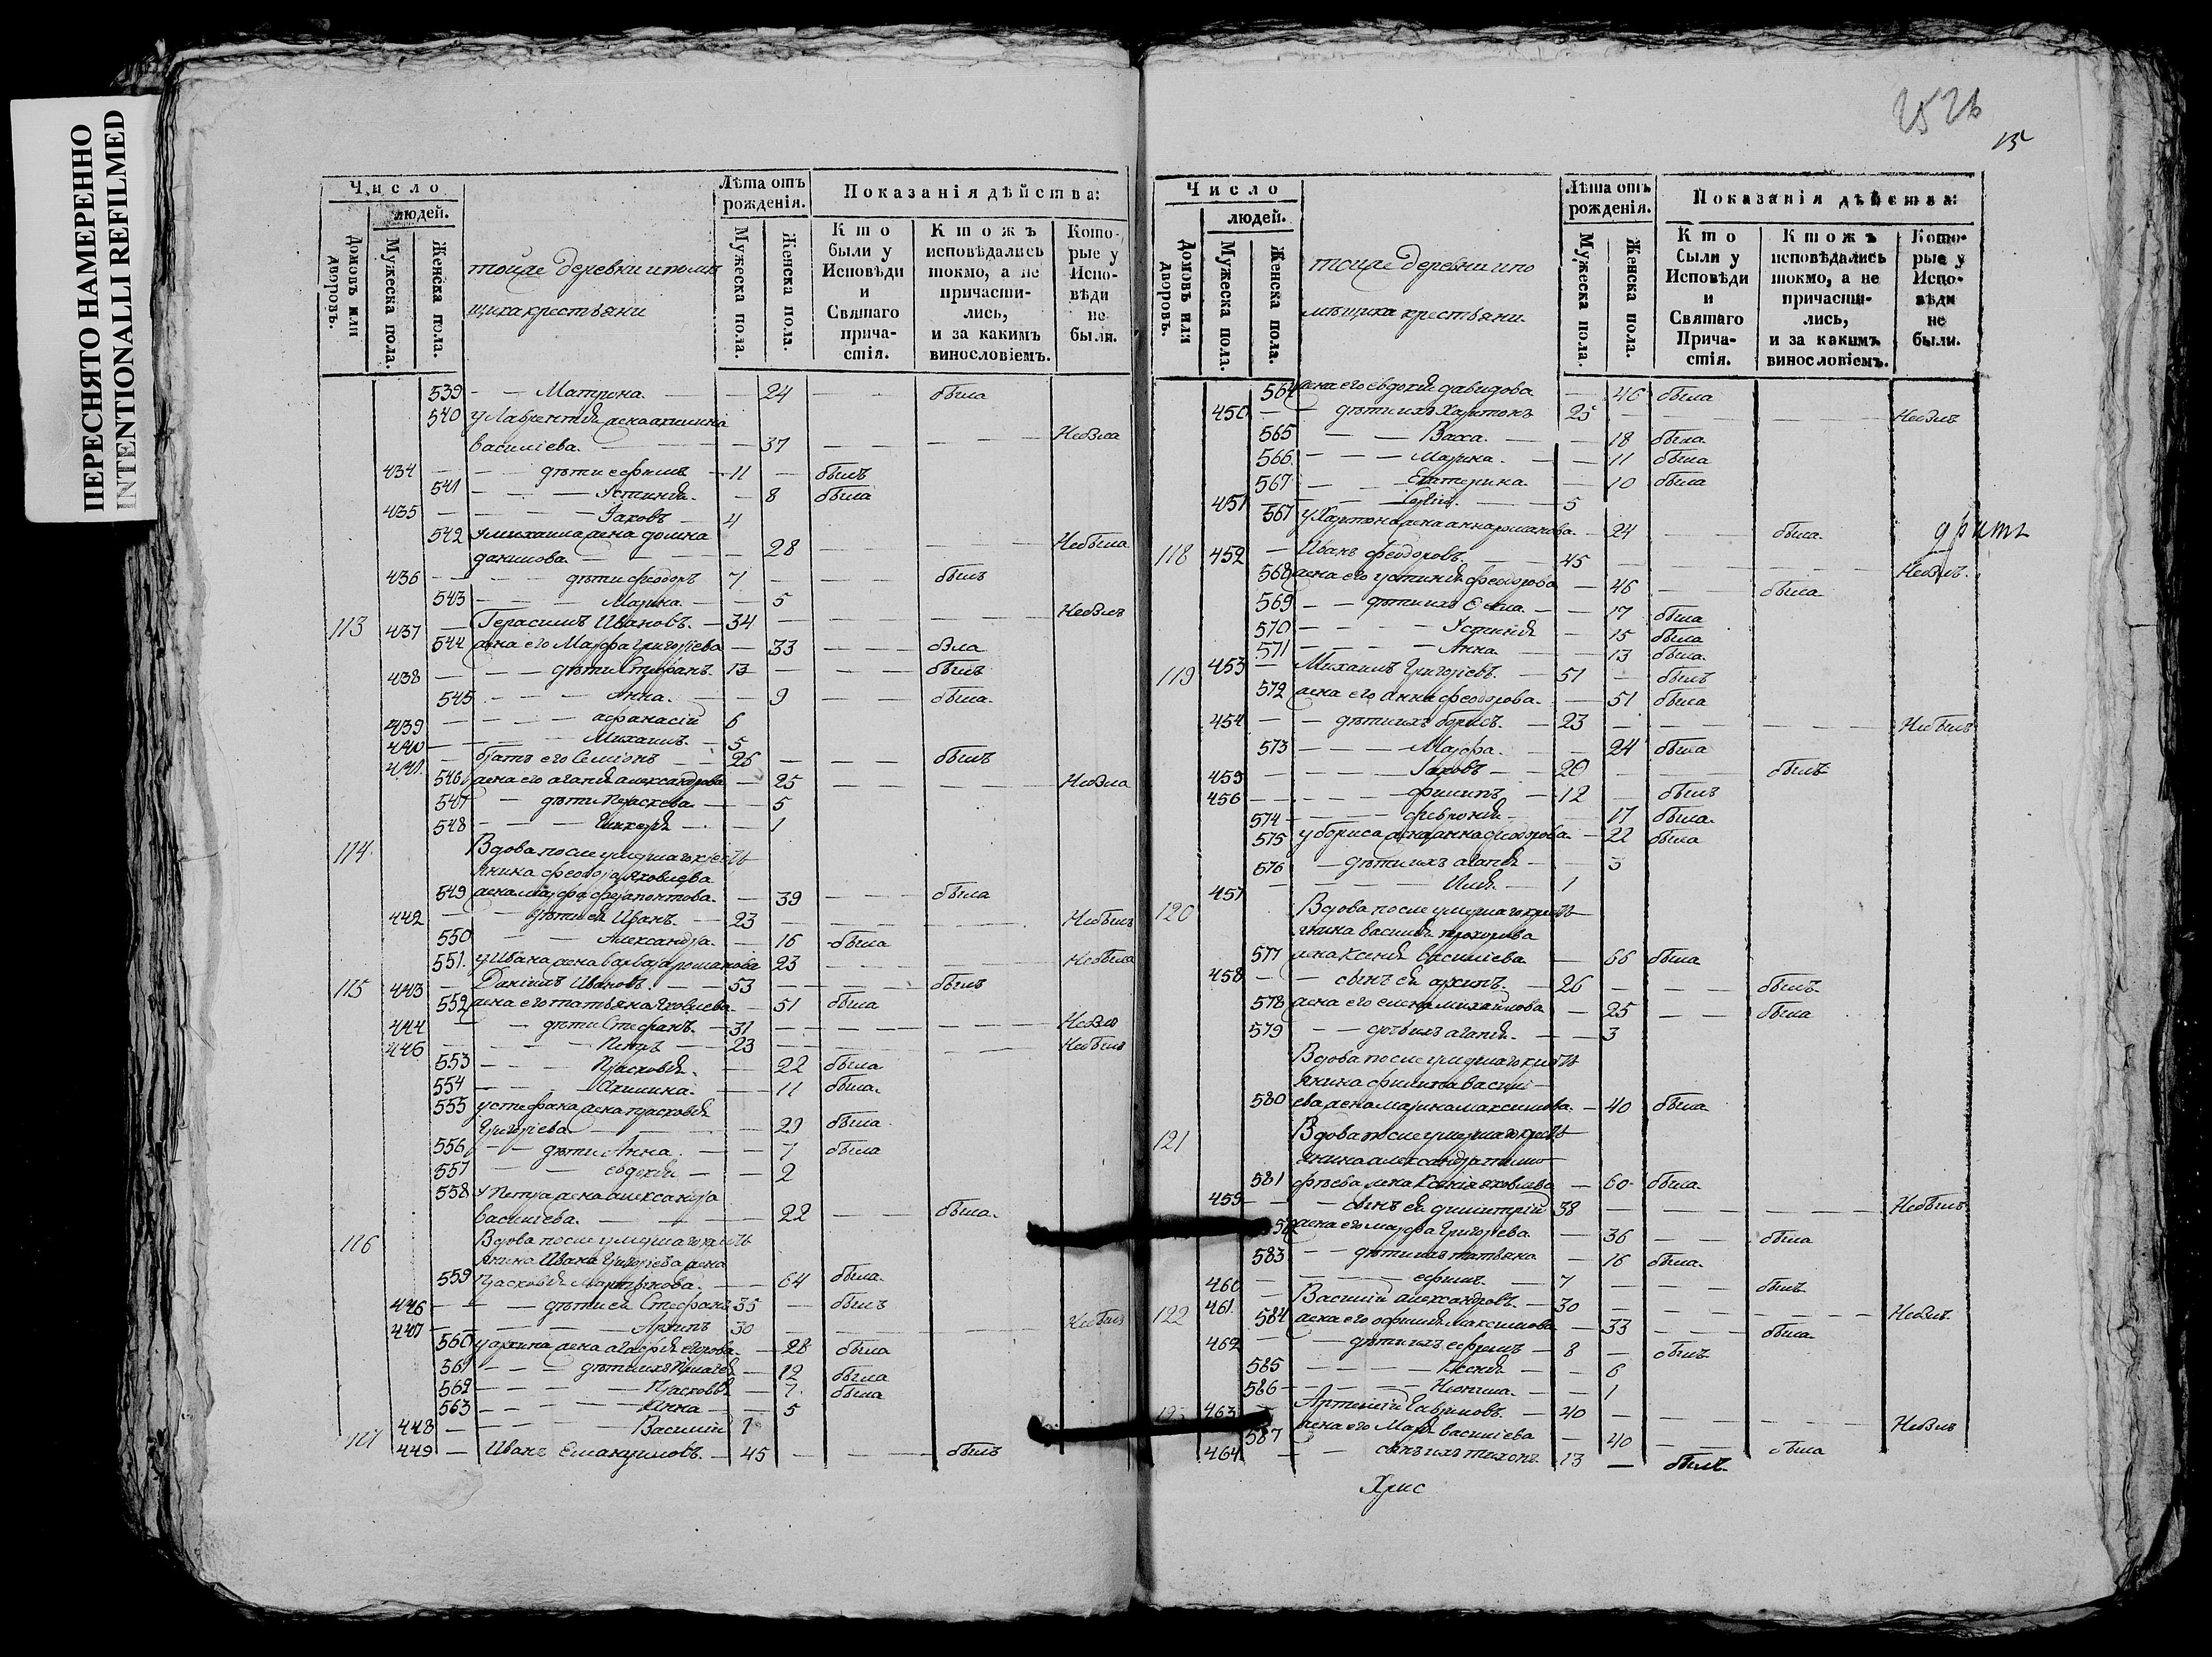 ПЕРЕСНЯТО НАМЕРЕННО
INTENTIONALLI REFILMED
Число
людей.
Домовъ или дворовъ.
Мужеска пола.
Женска пола.
тойже деревни и помѣ
щика крестьяни
Лѣта отъ рожденія.
Мужеска пола.
Женска пола.
Показанія дѣйства:
Кто были у Исповѣди и Святаго причастія.
Ктожъ исповѣдались токмо, а не причастились, и за какимъ винословіемъ.
Которые у Исповѣди не были.
539 — — Матрена — — 24 — — была
540 у Лаврентія жена акилина
василіева — — 37 — — — Небыла
434 — — дѣти ефимъ — 11 — былъ
541 — — Устинія — 8 была
435 — — Іаковъ — 4
542 у михаила жена домна
данилова — — 28 — — Небыла
436 — — дѣти феодоръ 7 — — былъ
543 — — Марина — 5
113 437 — Герасимъ Ивановъ — 34 — — — Небылъ
544 жена его Марфа григоріева — 33 — — была
438 — — дѣти Стефанъ 13 — — былъ
545 — — Анна — 9 — — была
439 — — афанасій 6
440 — — Михаилъ — 5
441 — братъ его Семіонъ — 26 — — былъ
546 жена его агапія александрова — 25 — — Небыла
547 — дѣти Параскева — 5
548 — — Гликерія — 1
114 Вдова после умершаго кресть
янина феодора яковлева
549 жена марфа ферапонтова — 39 — — была
442 — — дѣти ея Иванъ — 23 — — Небылъ
550 — — Александра — 16 была
551 у Ивана жена варвара романова 23 — — Небыла
115 443 — Даніилъ Ивановъ — 53 — — былъ
552 жена его татьяна яковлева — 51 была
444 — — дѣти Стефанъ — 31 — — Небылъ
445 — — Петръ — 23 — — Небылъ
553 — — Прасковія — 22 была
554 — — Акилина — 11 была
555 у стефана жена прасковія
Григоріева — — 29 была
556 — — дѣти Анна — 7 была
557 — — евдокія — 2
558 у Петра жена александра
василіева — — 22 — — была
116 Вдова после умершаго кресть
янина Ивана Григоріева жена
559 Прасковія Мартинова — 64 была
446 — — дѣти ея Стефанъ 35 — былъ
447 — — Архипъ 30 — — Небылъ
560 у архипа жена агафія егорова — 28 была
561 — — дѣти ихъ Пелагея — 12 была
562 — — Прасковія — 7 была
563 — — Анна — 5
448 — — Василій 1
117 449 — Иванъ 45 — — былъ
2526
15
Число
людей.
Домовъ или дворовъ.
Мужеска пола.
Женска пола.
тойже деревни и по
мѣщика крестьяни
Лѣта отъ рожденія.
Мужеска пола.
Женска пола.
Показанія дѣйства:
Кто были у Исповѣди и Святаго Причастія.
Ктожъ исповѣдались токмо, а не причастились, и за какимъ винословіемъ.
Которые у Исповѣди не были.
564 жена его евдокія давидова — 46 была
450 — — дѣти ихъ Харитонъ 25 — — Небылъ
565 — — Васса — 18 была
566 — — Марина — 11 была
567 — — Екатерина — 10 была
451 — — 5
567 у Харитона жена анна романова — 24 — — была
118 452 — Иванъ феодоровъ — 45 — — Небылъ
568 жена его устинія феодорова — 46 — была
569 — — дѣти ихъ — 17 была
570 — — Устинія — 15 была
571 — — Анна — 13 была
119 453 — Михаилъ Григоріевъ — 51 — былъ
572 жена его анна феодорова — 51 была
454 — — дѣти ихъ борисъ — 23 — — Небылъ
573 — — Марфа — 24 была
455 — — Іаковъ — 20 — — былъ
456 — — филипъ — 12 — былъ
574 — — февронія — 17 была
575 у бориса жена анна феодорова — 22 была
576 — дѣти ихъ агапія — 3
457 — — Илія — 1
120 Вдова после умершаго кресть
янина василія прохорова
577 жена Ксенія василіева — 66 была
458 — — сынъ ея архипъ — 26 — — былъ
578 жена его елена михайлова — 25 — — была
579 — — дочь ихъ агапія — 3
Вдова после умершаго кресть
янина филипа васили
580 ева жена марина максимова — 40 была
121 Вдова после умершаго кресть
янина александра тимо
581 фѣева жена Ксенія яковлева — 60 была
459 — — сынъ ея димитрій 38 — — Небылъ
582 жена его марфа Григорева — 36 — — была
583 — — дѣти ихъ татьяна — 16 была
460 — — ефимъ — 7 — — былъ
122 461 — Василій александровъ — 30 — — Небылъ
584 жена его офимія максимова — 33 — — была
462 — — дѣти ихъ ефремъ — 8 — былъ
585 — — Ксенія — 6
586 — — Неонила — 1
123 463 — Артемій Гавриловъ — 40 — — Небылъ
587 жена его Марія василіева — 40 — — была
464 — — сынъ ихъ тихонъ 13 — былъ
Хрис